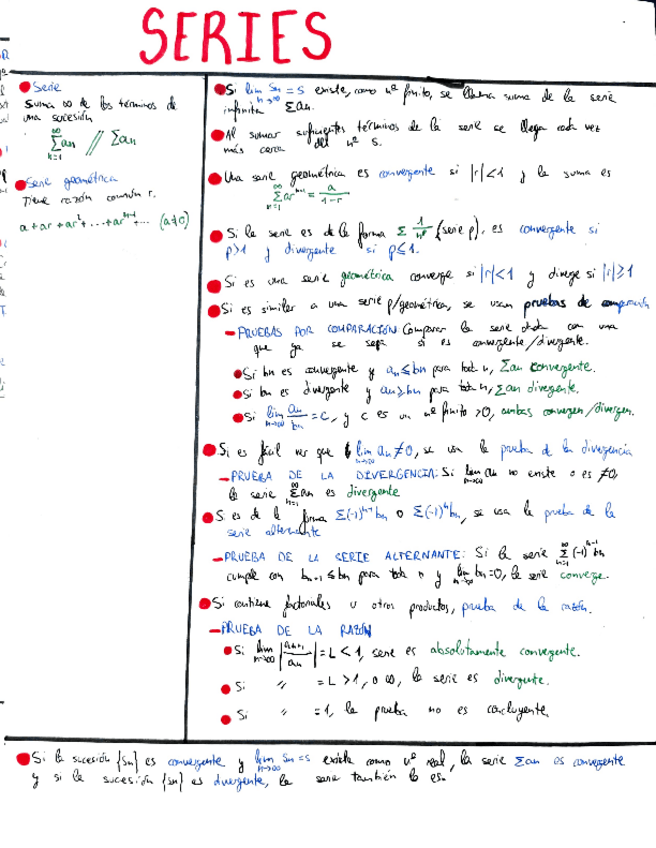 SERIES
● Serie
Suma ∞ de los términos de
una sucesión
∞ Σ n=1 an // Σan
● Serie geométrica
Tiene razón común r.
a + ar + ar² + ... + arⁿ⁻¹ ... (a≠0)
● Si lim n→∞ Sn = s existe, como nº finito, se llama suma de la serie
infinita Σan.
● Al sumar suficientes términos de la serie se llega cada vez
más cerca del nº s.
● Una serie geométrica es convergente si |r|<1 y la suma es
∞ Σ n=1 arⁿ⁻¹ = a/(1-r)
● Si la serie es de la forma Σ 1/nᵖ (serie p), es convergente si
p>1 y divergente si p≤1.
● Si es una serie geométrica converge si |r|<1 y diverge si |r|≥1
● Si es similar a una serie p/geométrica, se usan pruebas de comparación
– PRUEBAS POR COMPARACIÓN: Comparar la serie dada con una
que ya se sepa si es convergente/divergente.
● Si bn es convergente y an≤bn para todo n, Σan convergente.
● Si bn es divergente y an≥bn para todo n, Σan divergente.
● Si lim n→∞ an/bn = c, y c es un nº finito >0, ambas convergen/divergen.
● Si es fácil ver que lim n→∞ an≠0, se usa la prueba de la divergencia
– PRUEBA DE LA DIVERGENCIA: Si lim n→∞ an no existe o es ≠0,
la serie ∞ Σ n=1 an es divergente
● Si es de la forma Σ(-1)ⁿ⁻¹bn o Σ(-1)ⁿbn, se usa la prueba de la
serie alternante
– PRUEBA DE LA SERIE ALTERNANTE: Si la serie ∞ Σ n=1 (-1)ⁿ⁻¹ bn
cumple con bn+1 ≤ bn para todo n y lim n→∞ bn=0, la serie converge.
● Si contiene factoriales u otros productos, prueba de la razón.
– PRUEBA DE LA RAZÓN
● Si lim n→∞ |an+1/an| = L < 1, serie es absolutamente convergente.
● Si " = L > 1, o ∞, la serie es divergente.
● Si " = 1, la prueba no es concluyente
● Si la sucesión {sn} es convergente y lim n→∞ Sn = s existe como nº real, la serie Σan es convergente
y si la sucesión {sn} es divergente, la serie también lo es.